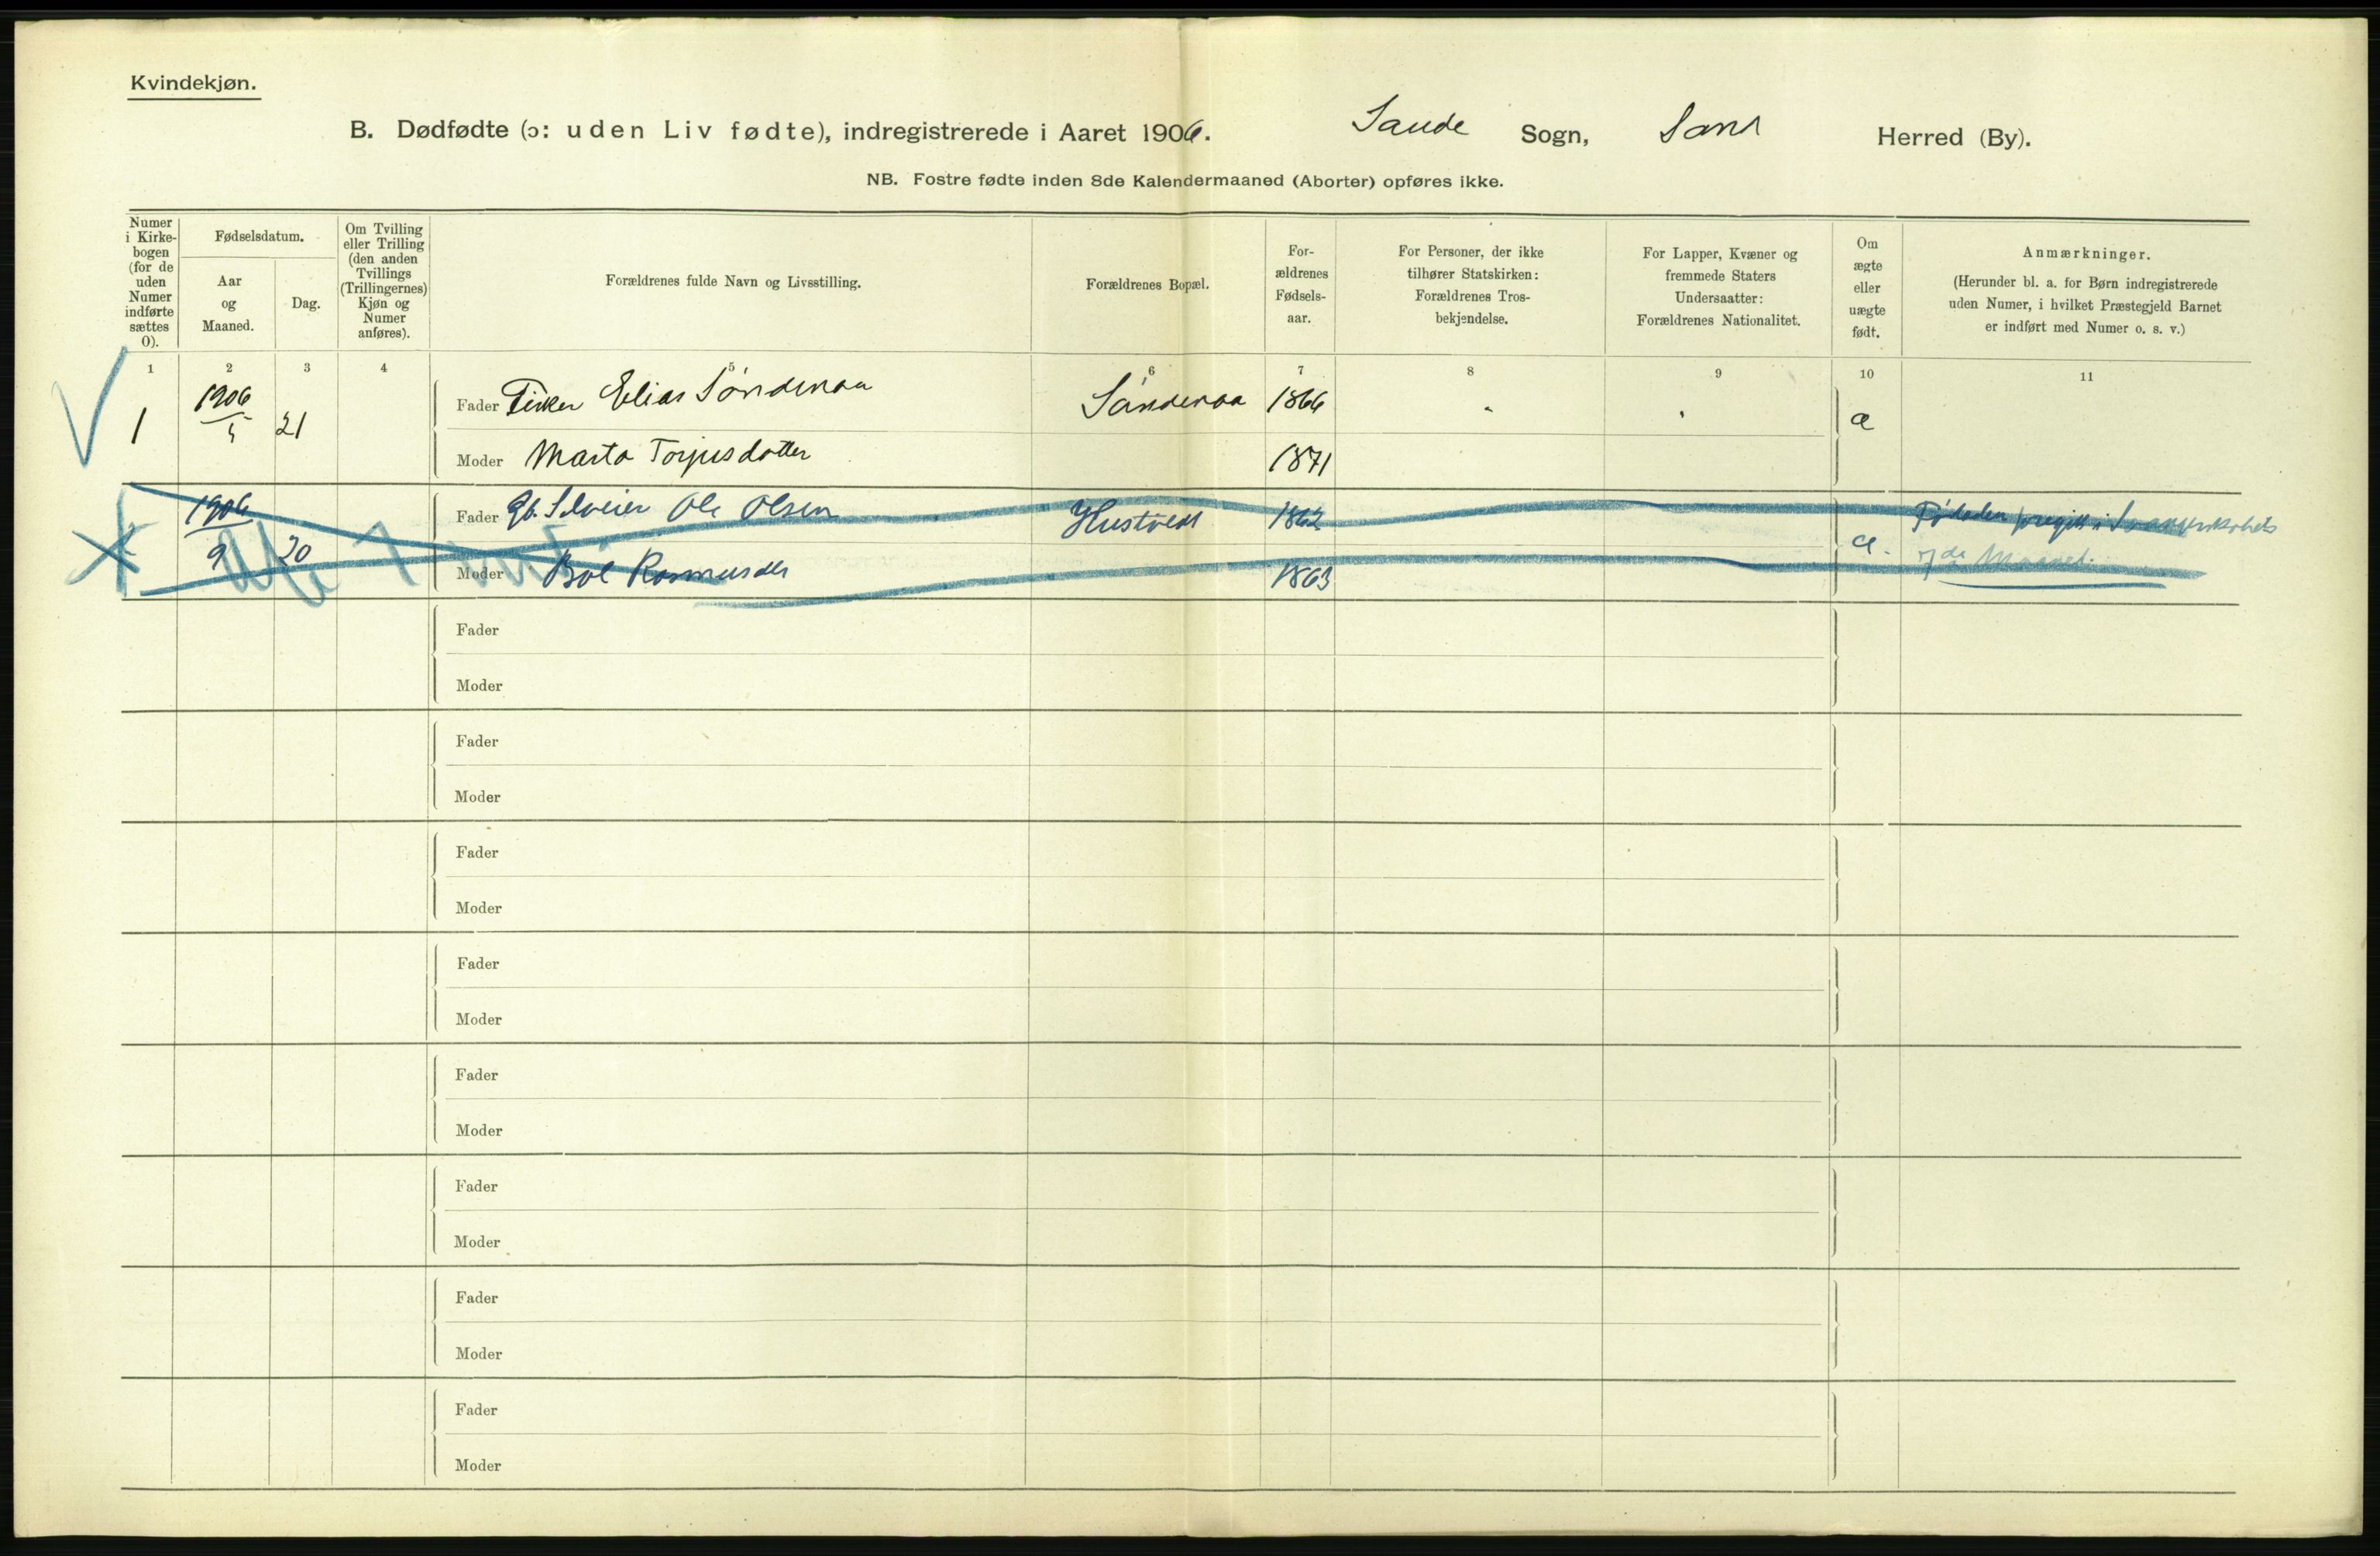 Kvindekjøn.
B. Dødfødte (ɔ: uden Liv fødte), indregistrerede i Aaret 1906. Saude Sogn, Sand Herred (By).
NB. Fostre fødte inden 8de Kalendermaaned (Aborter) opføres ikke.
Numer i Kirke-bogen (for de uden Numer indførte sættes 0).
Fødselsdatum.
Aar og Maaned.
Dag.
Om Tvilling eller Trilling (den anden Tvillings (Trillingernes) Kjøn og Numer anføres).
Forældrenes fulde Navn og Livsstilling.
Forældrenes Bopæl.
For-ældrenes Fødsels-aar.
For Personer, der ikke tilhører Statskirken: Forældrenes Tros-bekjendelse.
For Lapper, Kvæner og fremmede Staters Undersaatter: Forældrenes Nationalitet.
Om ægte eller uægte født.
Anmærkninger.
(Herunder bl. a. for Børn indregistrerede uden Numer, i hvilket Præstegjeld Barnet er indført med Numer o. s. v.)
1 2 3 4 5 6 7 8 9 10 11
1 1906/5 21 Fader Fisker Elias Søndenaa Søndenaa 1866 " " æ
Moder Marta Torjusdatter 1871
1906/9 20 Fader Gb. Selveier Ole Olsen Hustvedt 1862 æ. Fødselen foregik i Svangerskabets
Moder Bol Rasmusdtr 1863 7de Maaned.
Fader
Moder
Fader
Moder
Fader
Moder
Fader
Moder
Fader
Moder
Fader
Moder
Fader
Moder
Fader
Moder